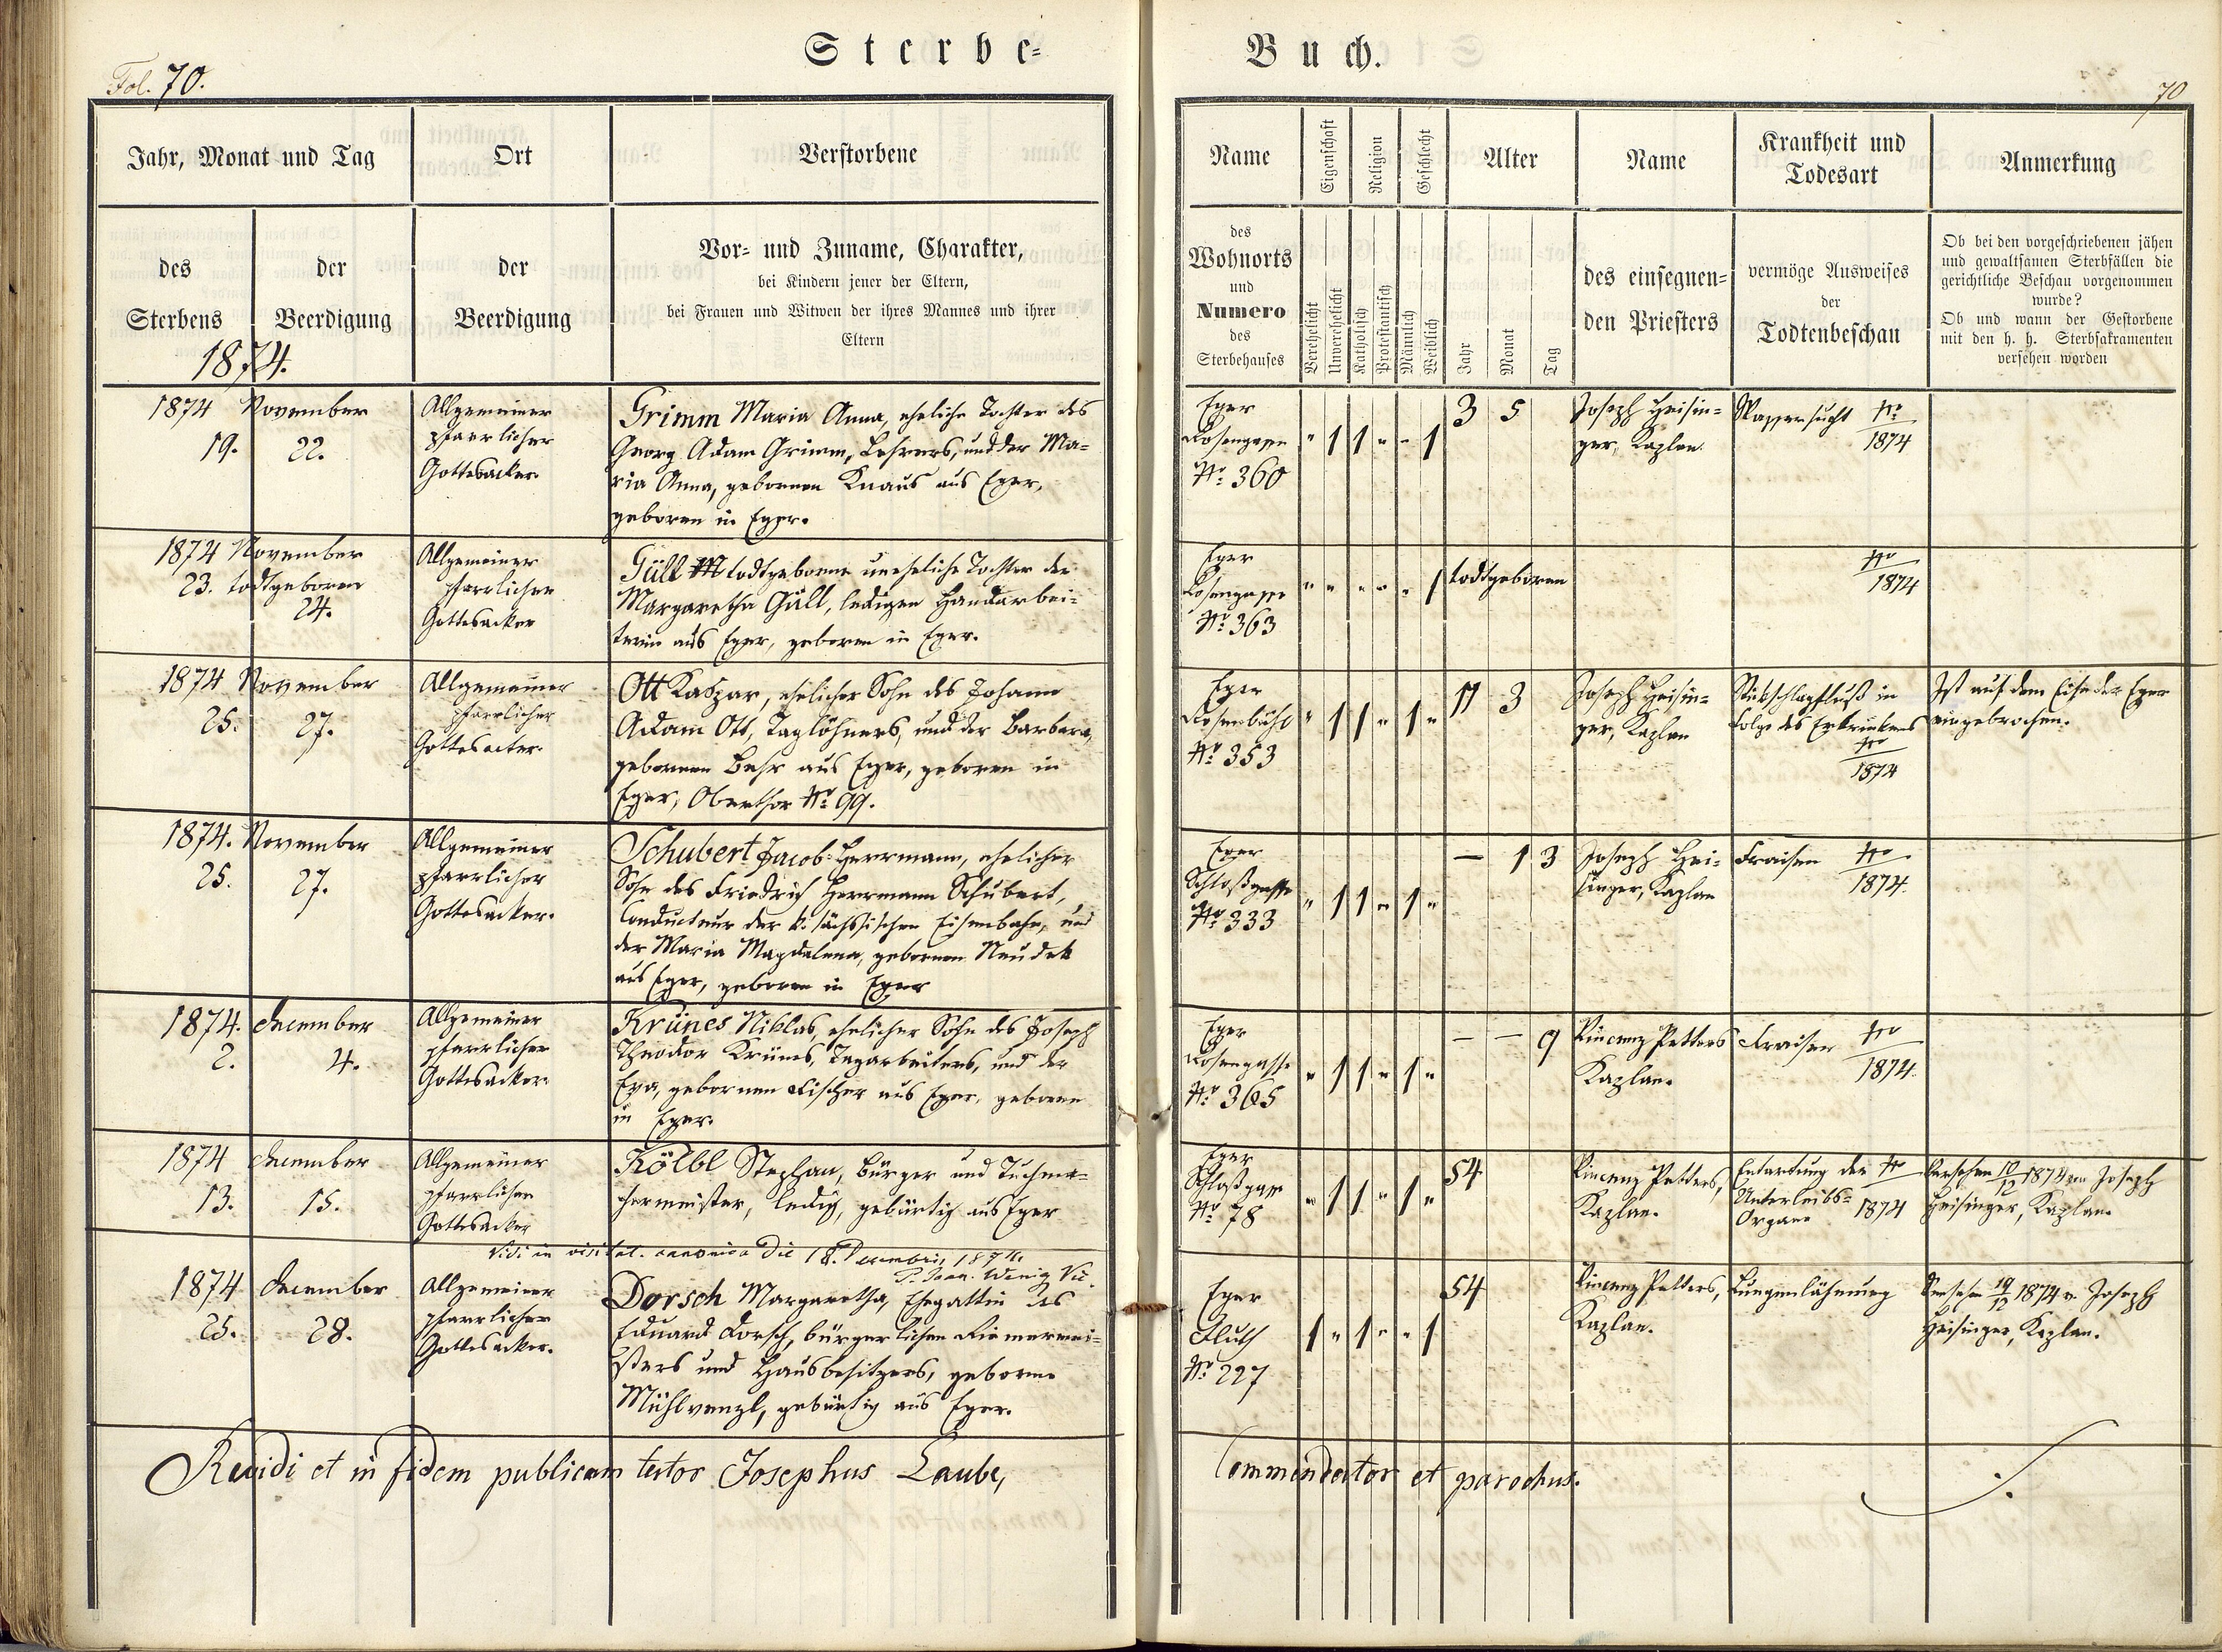 Sterbe-
Buch.
Fol. 70.
70
Jahr, Monat und Tag
Ort
Verstorbene
Name
Eigenschaft
Religion
Geschlecht
Alter
Name
Krankheit und
Todesart
Anmerkung
des
Sterbens
der
Beerdigung
der
Beerdigung
Vor- und Zuname, Charakter,
bei Kindern jener der Eltern,
bei Frauen und Witwen der ihres Mannes und ihrer
Eltern
des
Wohnorts
und
Numero
des
Sterbehauses
Verehelicht
Unverehelicht
Katholisch
Protestantisch
Männlich
Weiblich
Jahr
Monat
Tag
des einsegnen-
den Priesters
vermöge Ausweises
der
Todtenbeschau
Ob bei den vorgeschriebenen jähen
und gewaltsamen Sterbfällen die
gerichtliche Beschau vorgenommen
wurde?
Ob und wann der Gestorbene
mit den h. h. Sterbsakramenten
versehen worden
1874.
1874 November
19. 22.
Allgemeiner
pfarrlicher
Gottesacker.
Grimm Maria Anna, eheliche Tochter des
Georg Adam Grimm, Lehrers, und der Ma-
ria Anna, gebornen Knaus aus Eger,
geboren in Eger.
Eger
Rosengasse
Nro 360
" 1 1 " " 1
3 5
Joseph Heisin-
ger, Kaplan.
Wassersucht Nro
1874
1874 November
23. todtgeboren
24.
Allgemeiner
pfarrlicher
Gottesacker
Güll todtgeborne uneheliche Tochter der
Margaretha Güll, ledigen Handarbei-
terin aus Eger, geboren in Eger.
Eger
Rosengasse
Nro 363
" " " " " 1
todtgeboren
Nro
1874
1874 November
25. 27.
Allgemeiner
pfarrlicher
Gottesacker.
Ott Kaspar, ehelicher Sohn des Johann
Adam Ott, Taglöhners, und der Barbara,
gebornen Behr aus Eger, geboren in
Eger, Oberthor Nro 99.
Eger
Rosenbühl
Nro 353
" 1 1 " 1 "
11 3
Joseph Heisin-
ger, Kaplan
Stickschlagfluß in
Folge des Ertrinkens
Nro
1874
Ist auf dem Eise der Eger
eingebrochen.
1874. November
25. 27.
Allgemeiner
pfarrlicher
Gottesacker.
Schubert Jacob Herrmann, ehelicher
Sohn des Friedrich Herrmann Schubert,
Conducteur der k. sächsischen Eisenbahn, und
der Maria Magdalena, gebornen Neudek
aus Eger, geboren in Eger
Eger
Schloßgasse
Nro 333
" 1 1 " 1 "
— 1 3
Joseph Hei-
singer, Kaplan
Fraisen Nro
1874.
1874. December
2. 4.
Allgemeiner
pfarrlicher
Gottesacker.
Krünes Niklas, ehelicher Sohn des Joseph
Theodor Krünes, Tagarbeiters, und der
Eva, gebornen Fischer aus Eger, geboren
in Eger.
Eger
Rosengasse
Nro 365
" 1 1 " 1 "
— — 9
Vincenz Petters
Kaplan.
Fraisen Nro
1874.
1874 December
13. 15.
Allgemeiner
pfarrlicher
Gottesacker
Kölbl Stephan, Bürger und Tuchma-
chermeister, ledig, gebürtig aus Eger
Eger
Schloßgasse
Nro 78
" 1 1 " 1 "
54
Vincenz Petters,
Kaplan.
Entartung der Nro
Unterleibs-
Organe 1874
Versehen 10/12 1874 von Joseph
Heisinger, Kaplan.
Vidi in visitat. canonica die 18. Decembris 1874.
P. Joan. Wenig Vic.
1874 December
25. 28.
Allgemeiner
pfarrlicher
Gottesacker.
Dorsch Margaretha, Ehegattin des
Eduard Dorsch, bürgerlichen Riemermei-
sters und Hausbesitzers, geborne
Mühlvenzl, gebürtig aus Eger.
Eger
Fluth
Nro 227
1 " 1 " " 1
54
Vincenz Petters,
Kaplan.
Lungenlähmung
Versehen 19/12 1874 v. Joseph
Heisinger, Kaplan.
Revidi et in fidem publicam testor Josephus Laube,
Commendator et parochus.